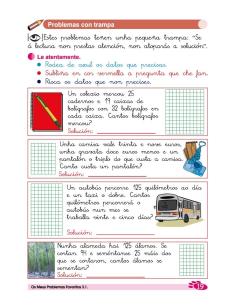 Problemas con trampa
Estos problemas teñen unha pequena trampa: "Se
á lectura non prestas atención, non atoparás a solución".
Le atentamente.
Rodea de azul os datos que precisas.
Subliña en cor vermella a pregunta que che fan.
Risca os datos que non precises.
Un colexio mercou 25
cadernos e 19 caixas de
bolígrafos con 32 bolígrafos en
cada caixa. Cantos bolígrafos
mercou?
Solución:
Unha camisa vale trinta e nove euros,
unha gravata doce euros menos e un
pantalón o triplo do que custa a camisa.
Canto custa un pantalón?
Solución:
Un autobús percorre 125 quilómetros ao día
e un taxi o dobre. Cantos
quilómetros percorrerá o
autobús nun mes se
traballa vinte e cinco días?
Solución:
Nunha alameda hai 125 álamos. Se
cortan 41 e sementan 25 máis dos
que se cortaron, cantos álamos se
sementan?
Solución:
Os Meus Problemas Favoritos 3.1.
19